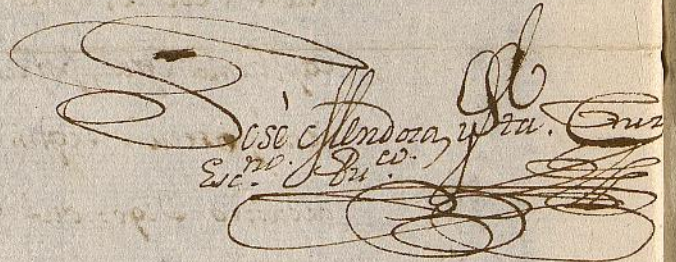 Josè Mendoza, y Sta. Cruz
Esc.no Pu.co